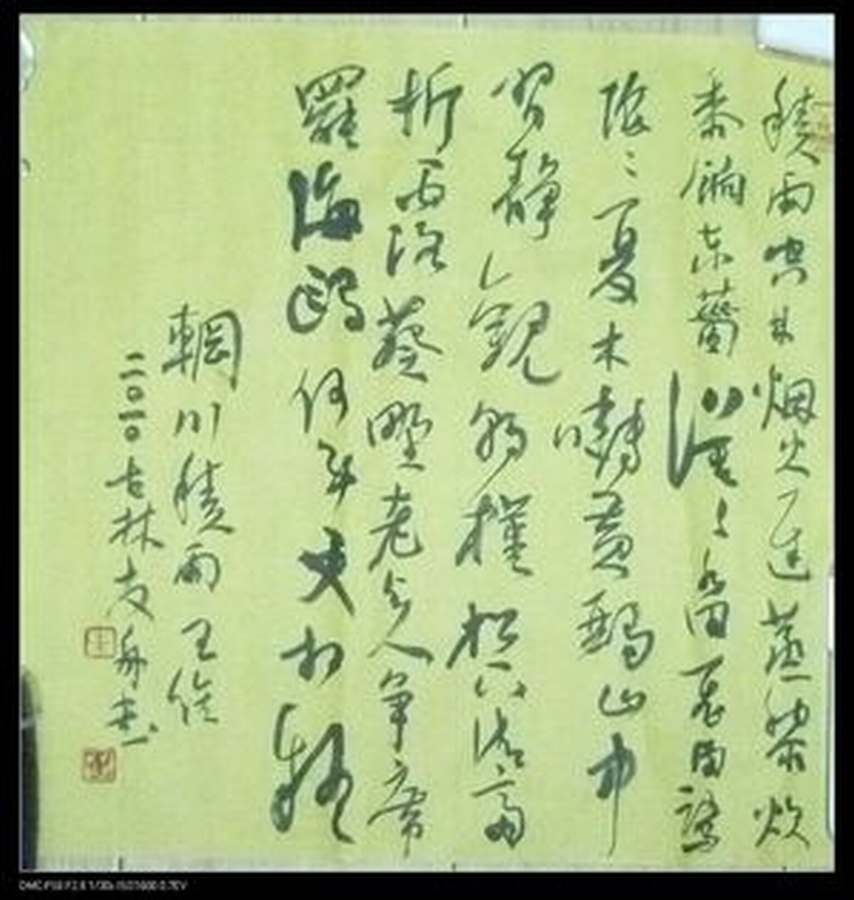 積雨空林烟火遲蒸藜炊
黍餉东菑漠〻水田飛白鷺
陰〻夏木囀黃鸝山中
習靜觀朝槿松下清齋
折露葵野老与人爭席
罷海鷗何事更相疑
輞川積雨王維
二〇一〇吉林友舟書